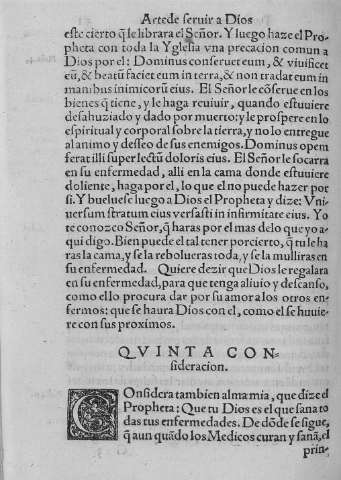 Arte de seruir a Dios
este cierto q̃ le librara el Señor. Y luego haze el Pro-
pheta con toda la Yglesia vna precacion comun a
Dios por el: Dominus conseruet eum, & viuificet
eũ, & beatũ faciet eum in terra, & non tradat eum in
manibus inimicorũ eius. El Señor le cõserue en los
bienes q̃ tiene, y le haga reuiuir, quando estuuiere
desahuziado y dado por muerto: y le prospere en lo
espiritual y corporal sobre la tierra, y no lo entregue
al animo y desseo de sus enemigos. Dominus opem
ferat illi super lectũ doloris eius. El Señor le socarra
en su enfermedad, alli en la cama donde estuuiere
doliente, haga por el, lo que el no puede hazer por
si. Y buelue se luego a Dios el Propheta y dize: Vni-
uersum stratum eius versasti in infirmitate eius. Yo
te conozco Señor, q̃ haras por el mas de lo que yo a-
qui digo. Bien puede el tal tener por cierto, q̃ tu le ha
ras la cama, y se la rebolueras toda, y se la mulliras en
su enfermedad. Quiere dezir que Dios le regalara
en su enfermedad, para que tenga aliuio y descanso,
como ello procura dar por su amor a los otros en-
fermos: que se haura Dios con el, como el se huuie-
re con sus proximos.
QVINTA CON-
sideracion.
COnsidera tambien alma mia, que dize el
Propheta: Que tu Dios es el que sana to
das tus enfermedades. De dõde se sigue,
q̃ aun quãdo los Medicos curan y sanã, el
prin-